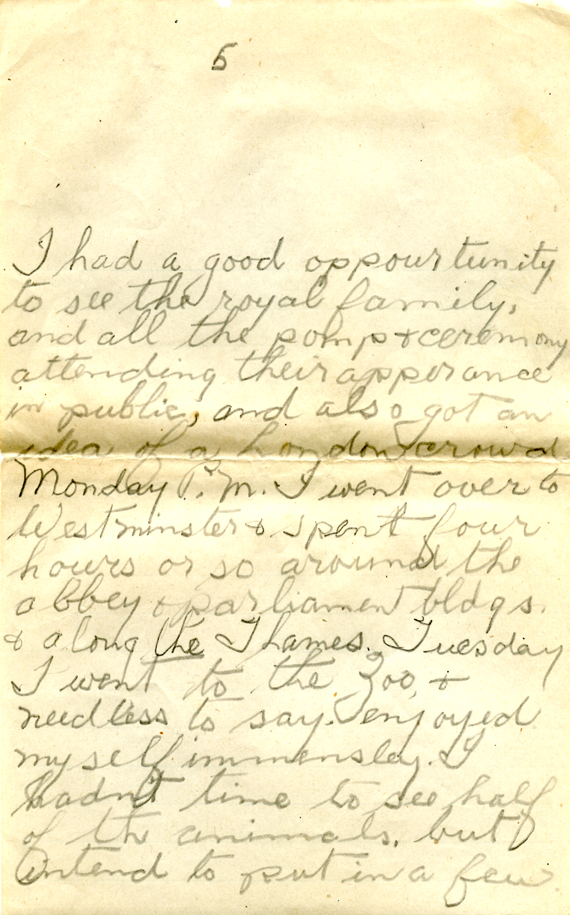 5
I had a good oppourtunity
to see the royal family,
and all the pomp & ceremony
attending their apperance
in public, and also got an
idea of a London crowd
Monday P.M. I went over to
Westminster & spent four
hours or so around the
abbey & parliament bldgs.
& along the Thames. Tuesday
I went to the Zoo, &
needless to say enjoyed
myself immensley. I
hadn't time to see half
of th animals, but
intend to put in a few